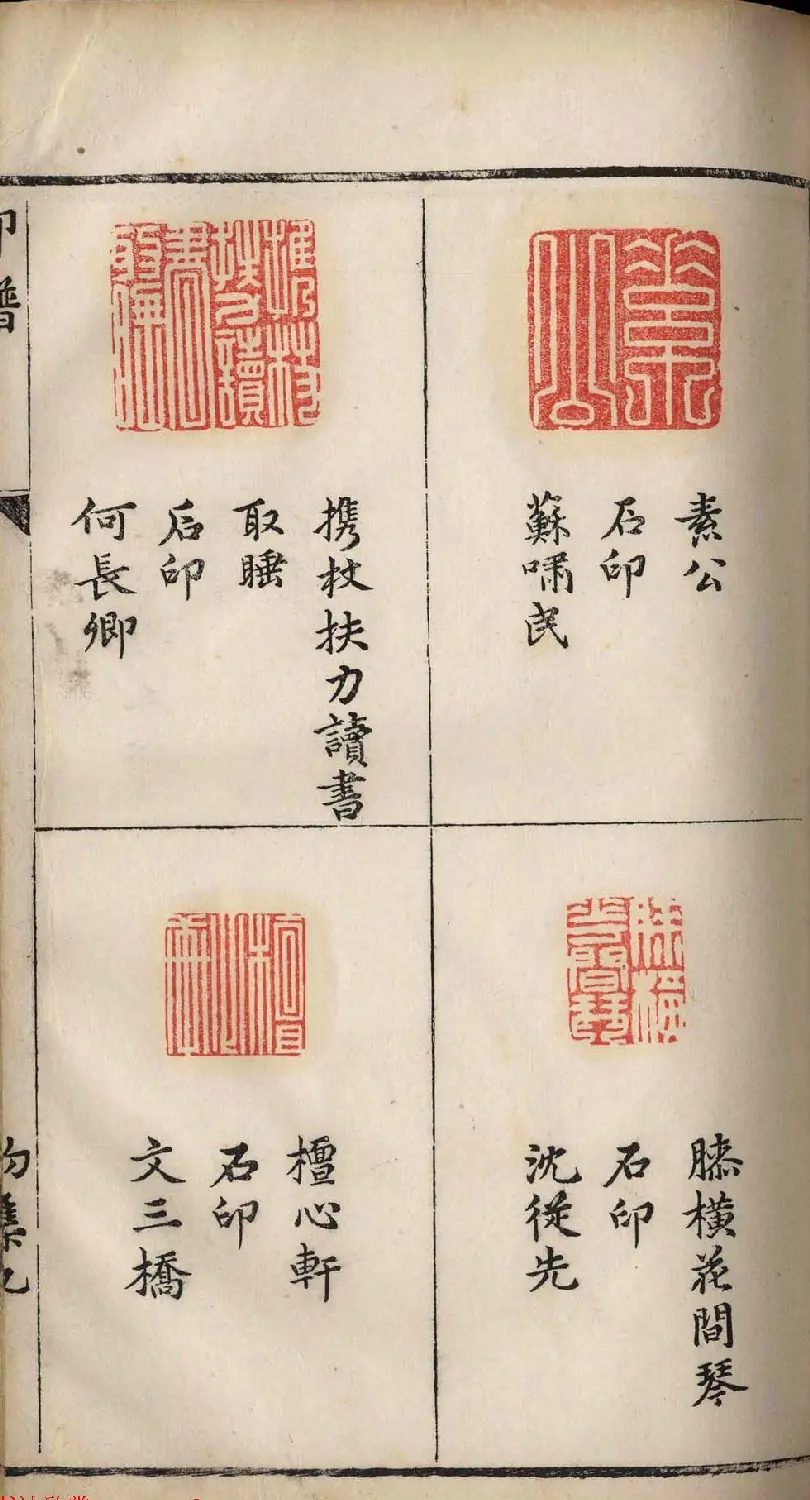 素公
石印
蘇嘯民
携杖扶力讀書
取睡
石印
何長卿
膝橫花間琴
石印
沈從先
檀心軒
石印
文三橋
印譜